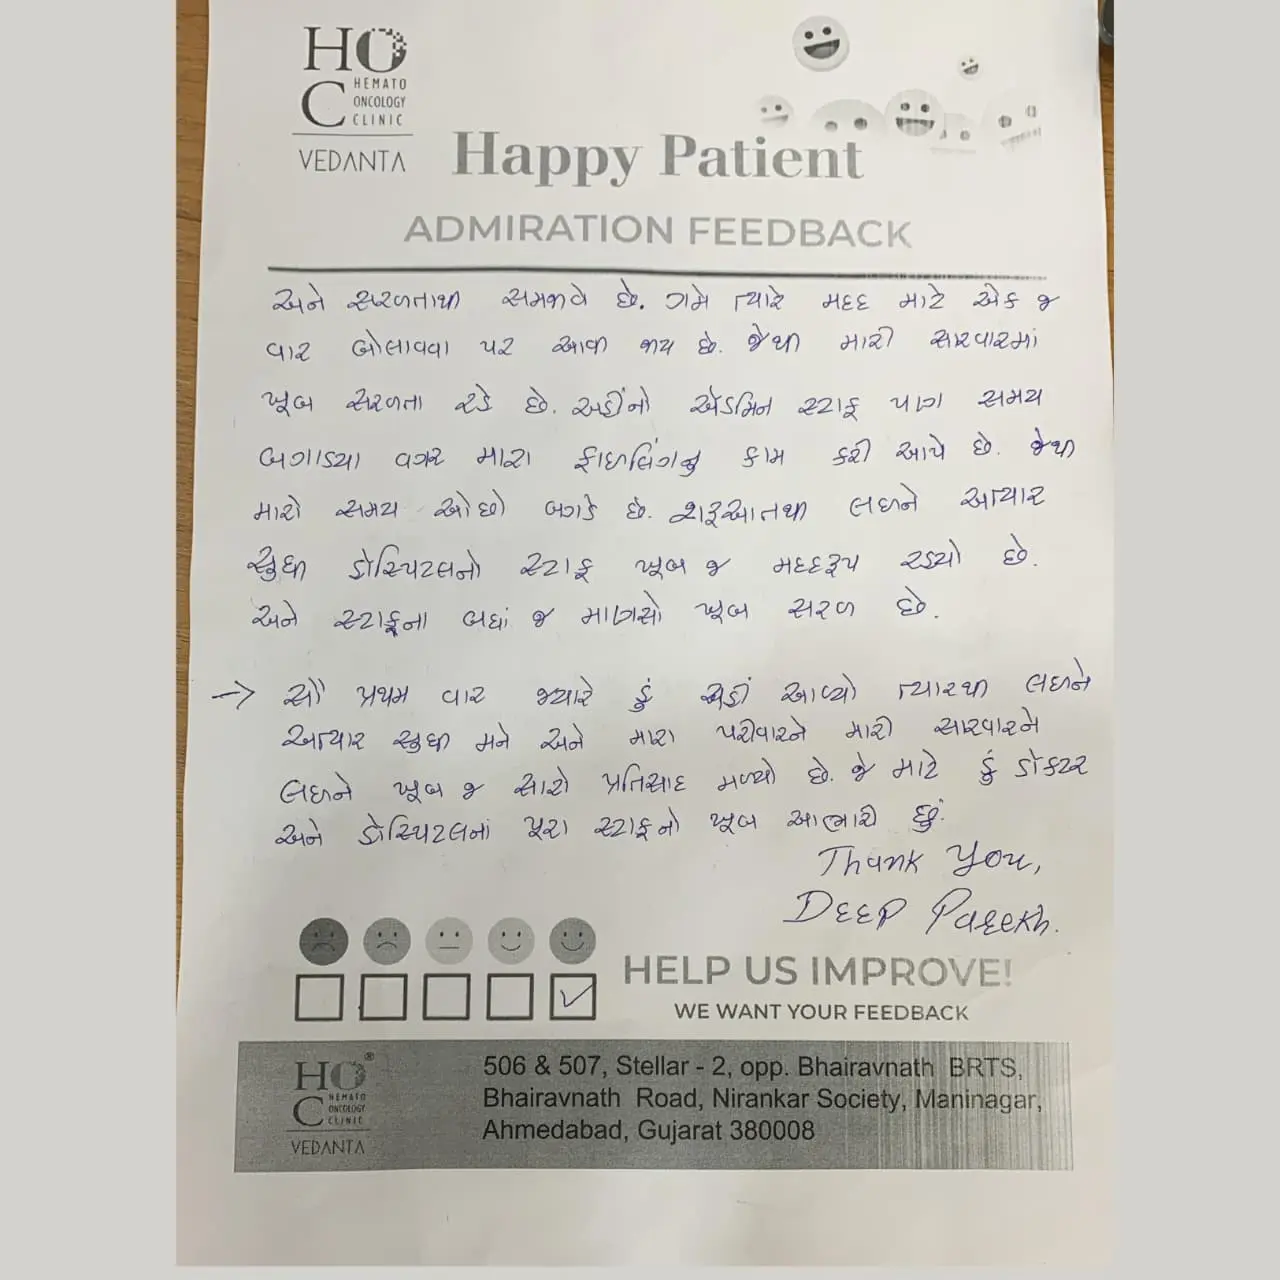 HOC
HEMATO
ONCOLOGY
CLINIC
VEDANTA
Happy Patient
ADMIRATION FEEDBACK
અને સરળતાથી સમજાવે છે. ગમે ત્યારે મદદ માટે એક જ
વાર બોલાવવા પર આવી જાય છે. જેથી મારી સારવારમાં
ખૂબ સરળતા રહે છે. અહીંનો એડમિન સ્ટાફ પણ સમય
બગાડ્યા વગર મારા ફાઇલિંગનું કામ કરી આપે છે. જેથી
મારો સમય ઓછો બગડે છે. શરૂઆતથી લઇને અત્યાર
સુધી હોસ્પિટલનો સ્ટાફ ખૂબ જ મદદરૂપ રહ્યો છે.
અને સ્ટાફના બધાં જ માણસો ખૂબ સરળ છે.
→ સૌ પ્રથમ વાર જ્યારે હું અહીં આવ્યો ત્યારથી લઇને
અત્યાર સુધી મને અને મારા પરીવારને મારી સારવારને
લઇને ખૂબ જ સારો પ્રતિસાદ મળ્યો છે. જે માટે હું ડોક્ટર
અને હોસ્પિટલનાં પૂરા સ્ટાફનો ખૂબ આભારી છું.
Thank You,
DEEP Parekh.
HELP US IMPROVE!
WE WANT YOUR FEEDBACK
HOC®
HEMATO
ONCOLOGY
CLINIC
VEDANTA
506 & 507, Stellar - 2, opp. Bhairavnath BRTS,
Bhairavnath Road, Nirankar Society, Maninagar,
Ahmedabad, Gujarat 380008